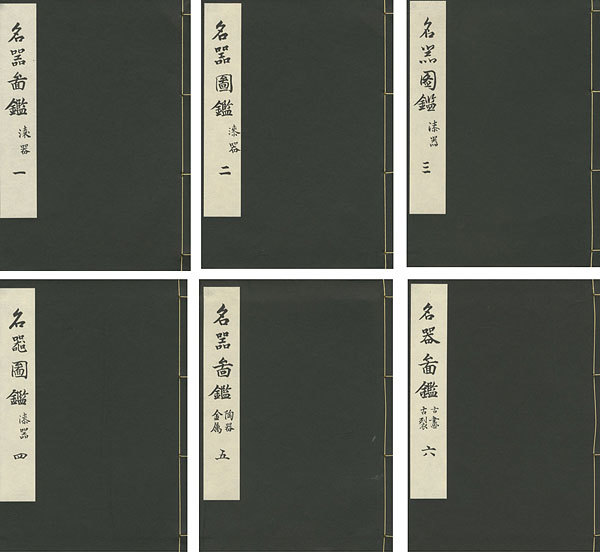 名器啚鑑 漆器 一
名器圖鑑 漆器 二
名器圖鑑 漆器 三
名器圖鑑 漆器 四
名器啚鑑 陶器 金属 五
名器啚鑑 古書 古裂 六